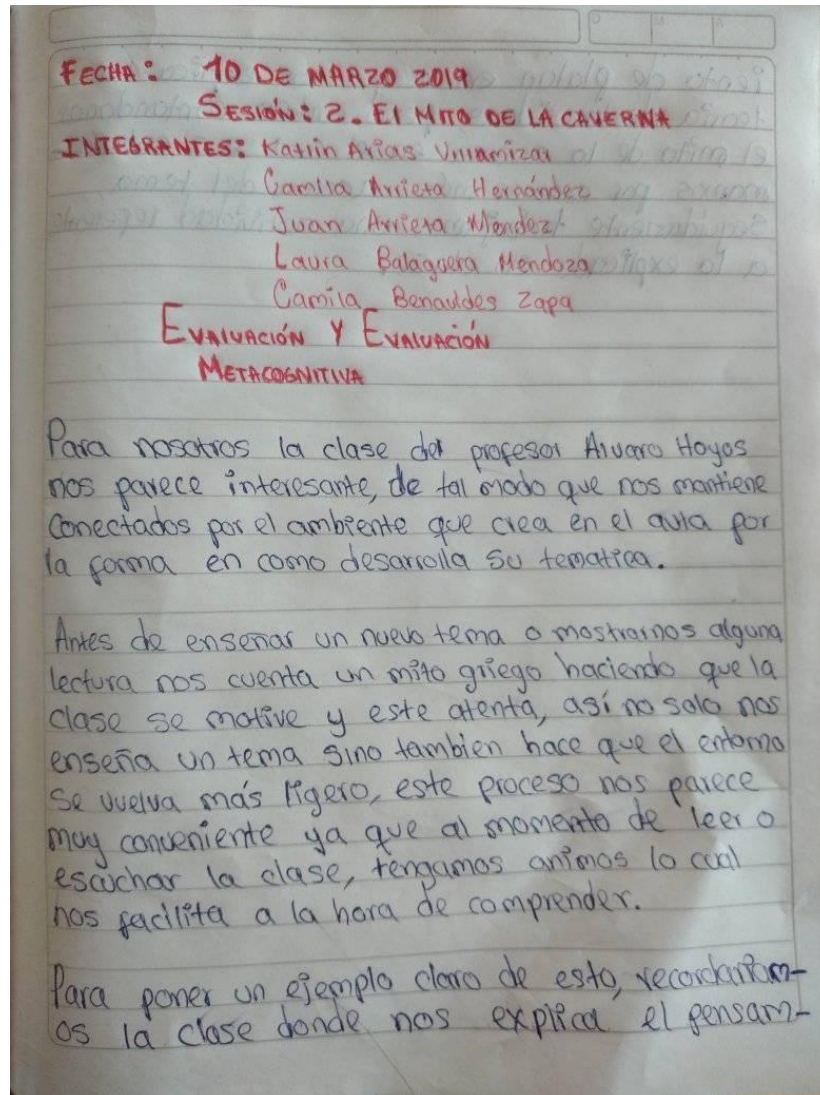 FECHA: 10 DE MARZO 2019
SESIÓN: 2. El MITO DE LA CAVERNA
INTEGRANTES: Katlin Arias Villamizar
Camila Arrieta Hernández
Juan Arrieta Mendez
Laura Balaguera Mendoza
Camila Benavides Zapa
EVALUACIÓN Y EVALUACIÓN
METACOGNITIVA
Para nosotros la clase del profesor Alvaro Hoyos
nos parece interesante, de tal modo que nos mantiene
conectados por el ambiente que crea en el aula por
la forma en como desarrolla su tematica.
Antes de enseñar un nuevo tema o mostrarnos alguna
lectura nos cuenta un mito griego haciendo que la
clase se motive y este atenta, así no solo nos
enseña un tema sino tambien hace que el entorno
se vuelva más ligero, este proceso nos parece
muy conveniente ya que al momento de leer o
escuchar la clase, tengamos animos lo cual
nos facilita a la hora de comprender.
Para poner un ejemplo claro de esto, recordaríam-
os la clase donde nos explica el pensam-